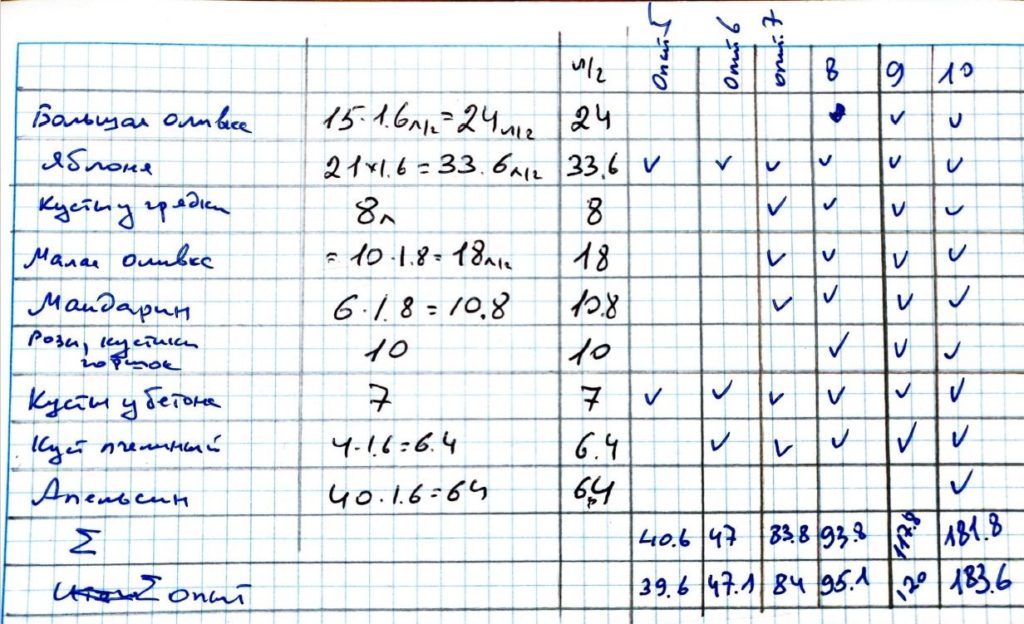 л/г Опыт 5 Опыт 6 опыт. 7 8 9 10
Большая оливка 15·1.6л/г = 24л/г 24 ✓ ✓
Яблоня 21×1.6 = 33.6л/г 33.6 ✓ ✓ ✓ ✓ ✓ ✓
Кусты у грядки 8л 8 ✓ ✓ ✓ ✓
Малая оливка = 10·1.8 = 18л/г 18 ✓ ✓ ✓ ✓
Мандарин 6·1.8 = 10.8 10.8 ✓ ✓ ✓ ✓
Розы, кустики 10 10 ✓ ✓ ✓
Кусты у бетона 7 7 ✓ ✓ ✓ ✓ ✓ ✓
Куст пчелиный 4·1.6 = 6.4 6.4 ✓ ✓ ✓ ✓ ✓
Апельсин 40·1.6 = 64 64 ✓
Σ 40.6 47 83.8 93.8 117.8 181.8
Σ опыт 39.6 47.1 84 95.1 120 183.6